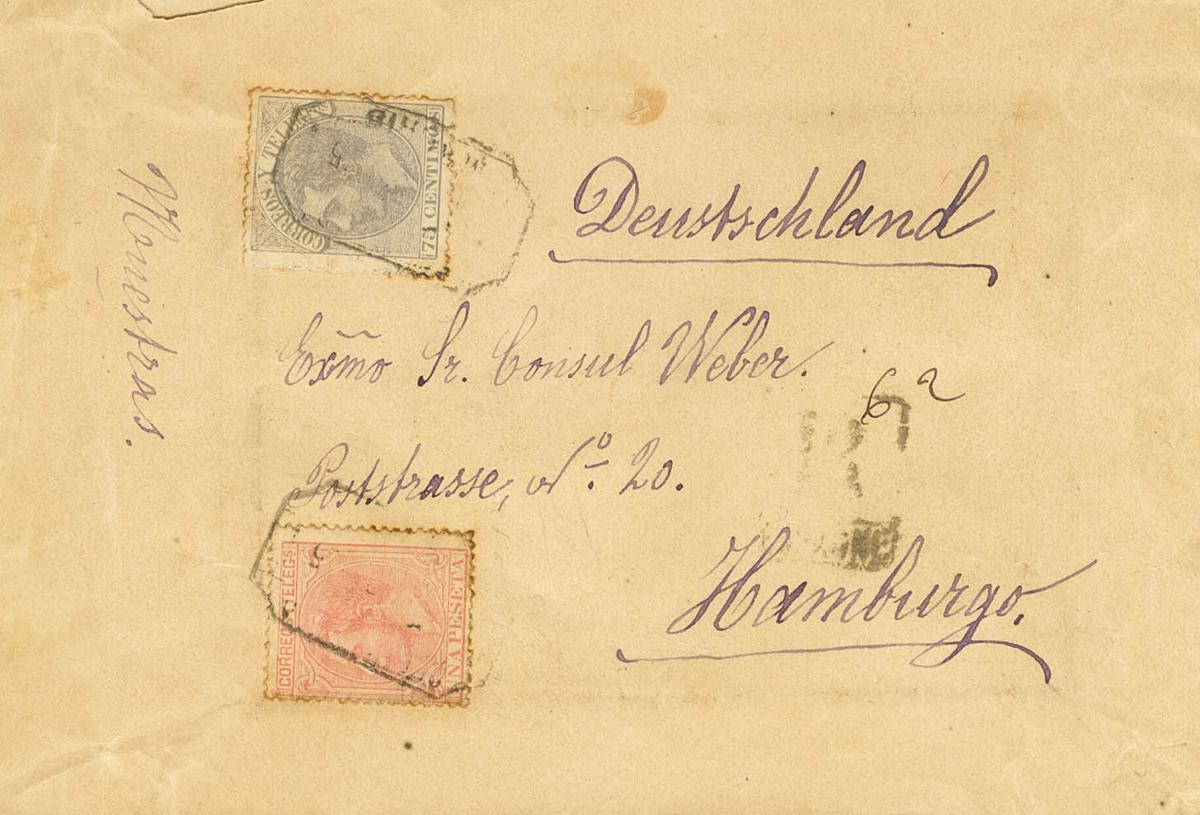 Deustschland
Exmo Sr. Consul Weber.
Poststrasse, Nº. 20.
Hamburgo.
Muestras.
CORREOS Y TELEGFS
75 CENTIMOS
CORREOS Y TELEGS
UNA PESETA
6 a